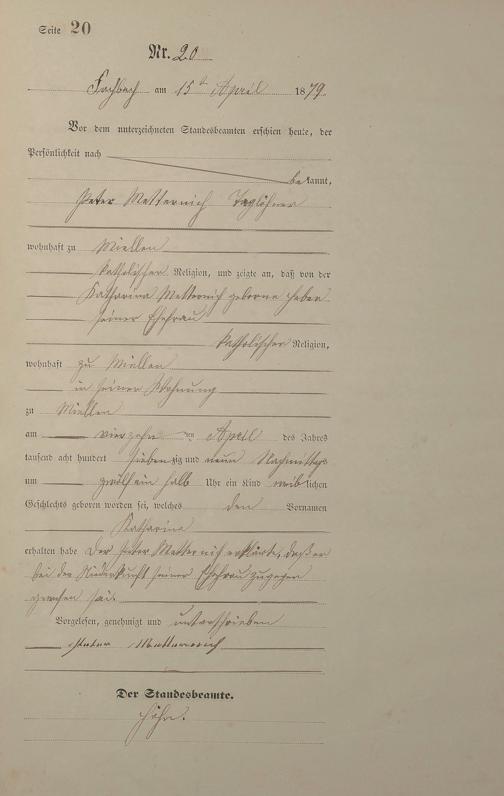 Seite 20
Nr. 20
Fachbach am 15t April 1879.
Vor dem unterzeichneten Standesbeamten erschien heute, der
Persönlichkeit nach
bekannt,
Peter Metternich Taglöhner
wohnhaft zu Miellen
katholischer Religion, und zeigte an, daß von der
Katharina Metternich geborne
seiner Ehefrau
katholischer Religion,
wohnhaft zu Miellen
in seiner Wohnung
zu Miellen
am vierzehn ten April des Jahres
tausend acht hundert siebenzig und neun Nachmittags
um zwölf ein halb Uhr ein Kind weiblichen
Geschlechts geboren worden sei, welches den Vornamen
Katharina
erhalten habe Der Peter Metternich erklärte, daß er
bei der Niederkunft seiner Ehefrau zugegen
gewesen sei.
Vorgelesen, genehmigt und unterschrieben
Peter Metternich
Der Standesbeamte.